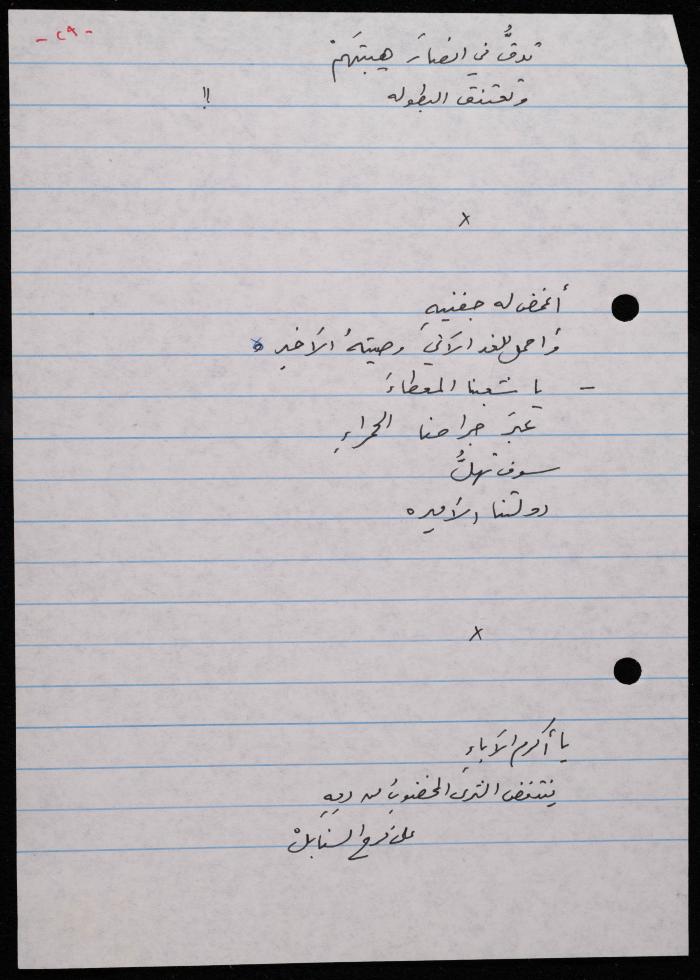 - ٢٩ -
تدقُّ في انصار هيبتَهمْ
وتعتنق البطوله !!
x
أغمض له جفنيهِ
وَاحمل للغد الآتي وصيتهُ الأخير ه
- يا شعبنا المعطاءَ
عبَر جراحنا الحمراءِ
سوف تهلُّ
دولتنا الأميره
x
يا أكرم الآباءِ
ينتفض الثرى المخضوبُ من دمِهِ
على فرح السنابلْ